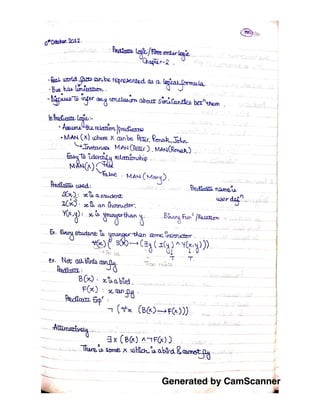 8th October 2012.
Predicate Logic / First order logic
Chapter-2.
- Real world facts can be represented as a logical formula
- But has limitation.
to infer any conclusion about similarities betn them.
In Predicate logic:-
• Assume the relation/predicate
- MAN (X) where X can be Peter, Ronak, John
Instances MAN (Peter). MAN (Ronak)
Easy to identify relationship.
MAN (X) True
False. MAN (Mary).
Predicates used: Predicate name is
S(x): x is a student user defn.
I(x): x is an Instructor.
Y(x,y): x is younger than y. Binary Funn/Relation
Ex. Every student is younger than some instructor
∀(x) S(x) → (∃y (I(y) ∧ Y(x,y))).
T T
ex. Not all birds can fly.
Predicate:
B(x): x is a bird.
F(x): x can fly.
Predicate Expn:
¬ (∀x (B(x) → F(x)))
Alternatively
∃x (B(x) ∧ ¬F(x))
There is some x which is a bird & cannot fly
Generated by CamScanner